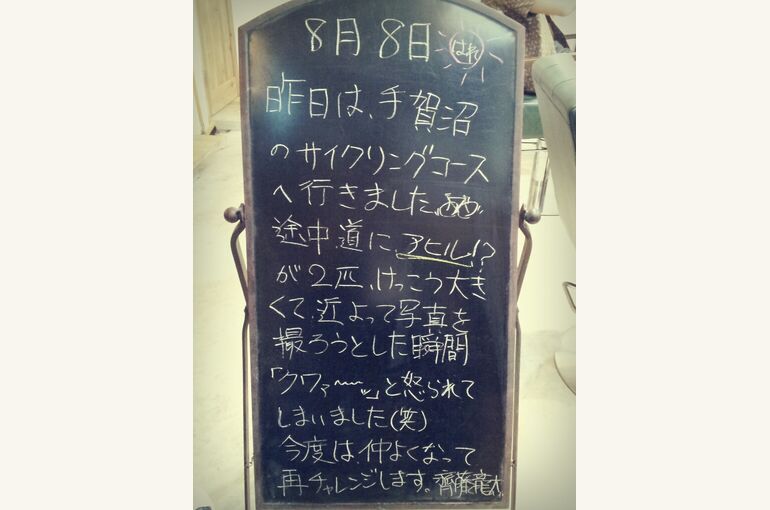 8月8日 はれ
昨日は、手賀沼
のサイクリングコース
へ行きました。
途中、道に、アヒル!?
が2匹、けっこう大き
くて、近よって写真を
撮ろうとした瞬間
「クワァ〜〜ッ」と怒られて
しまいました(笑)
今度は、仲よくなって
再チャレンジします。齊藤龍太